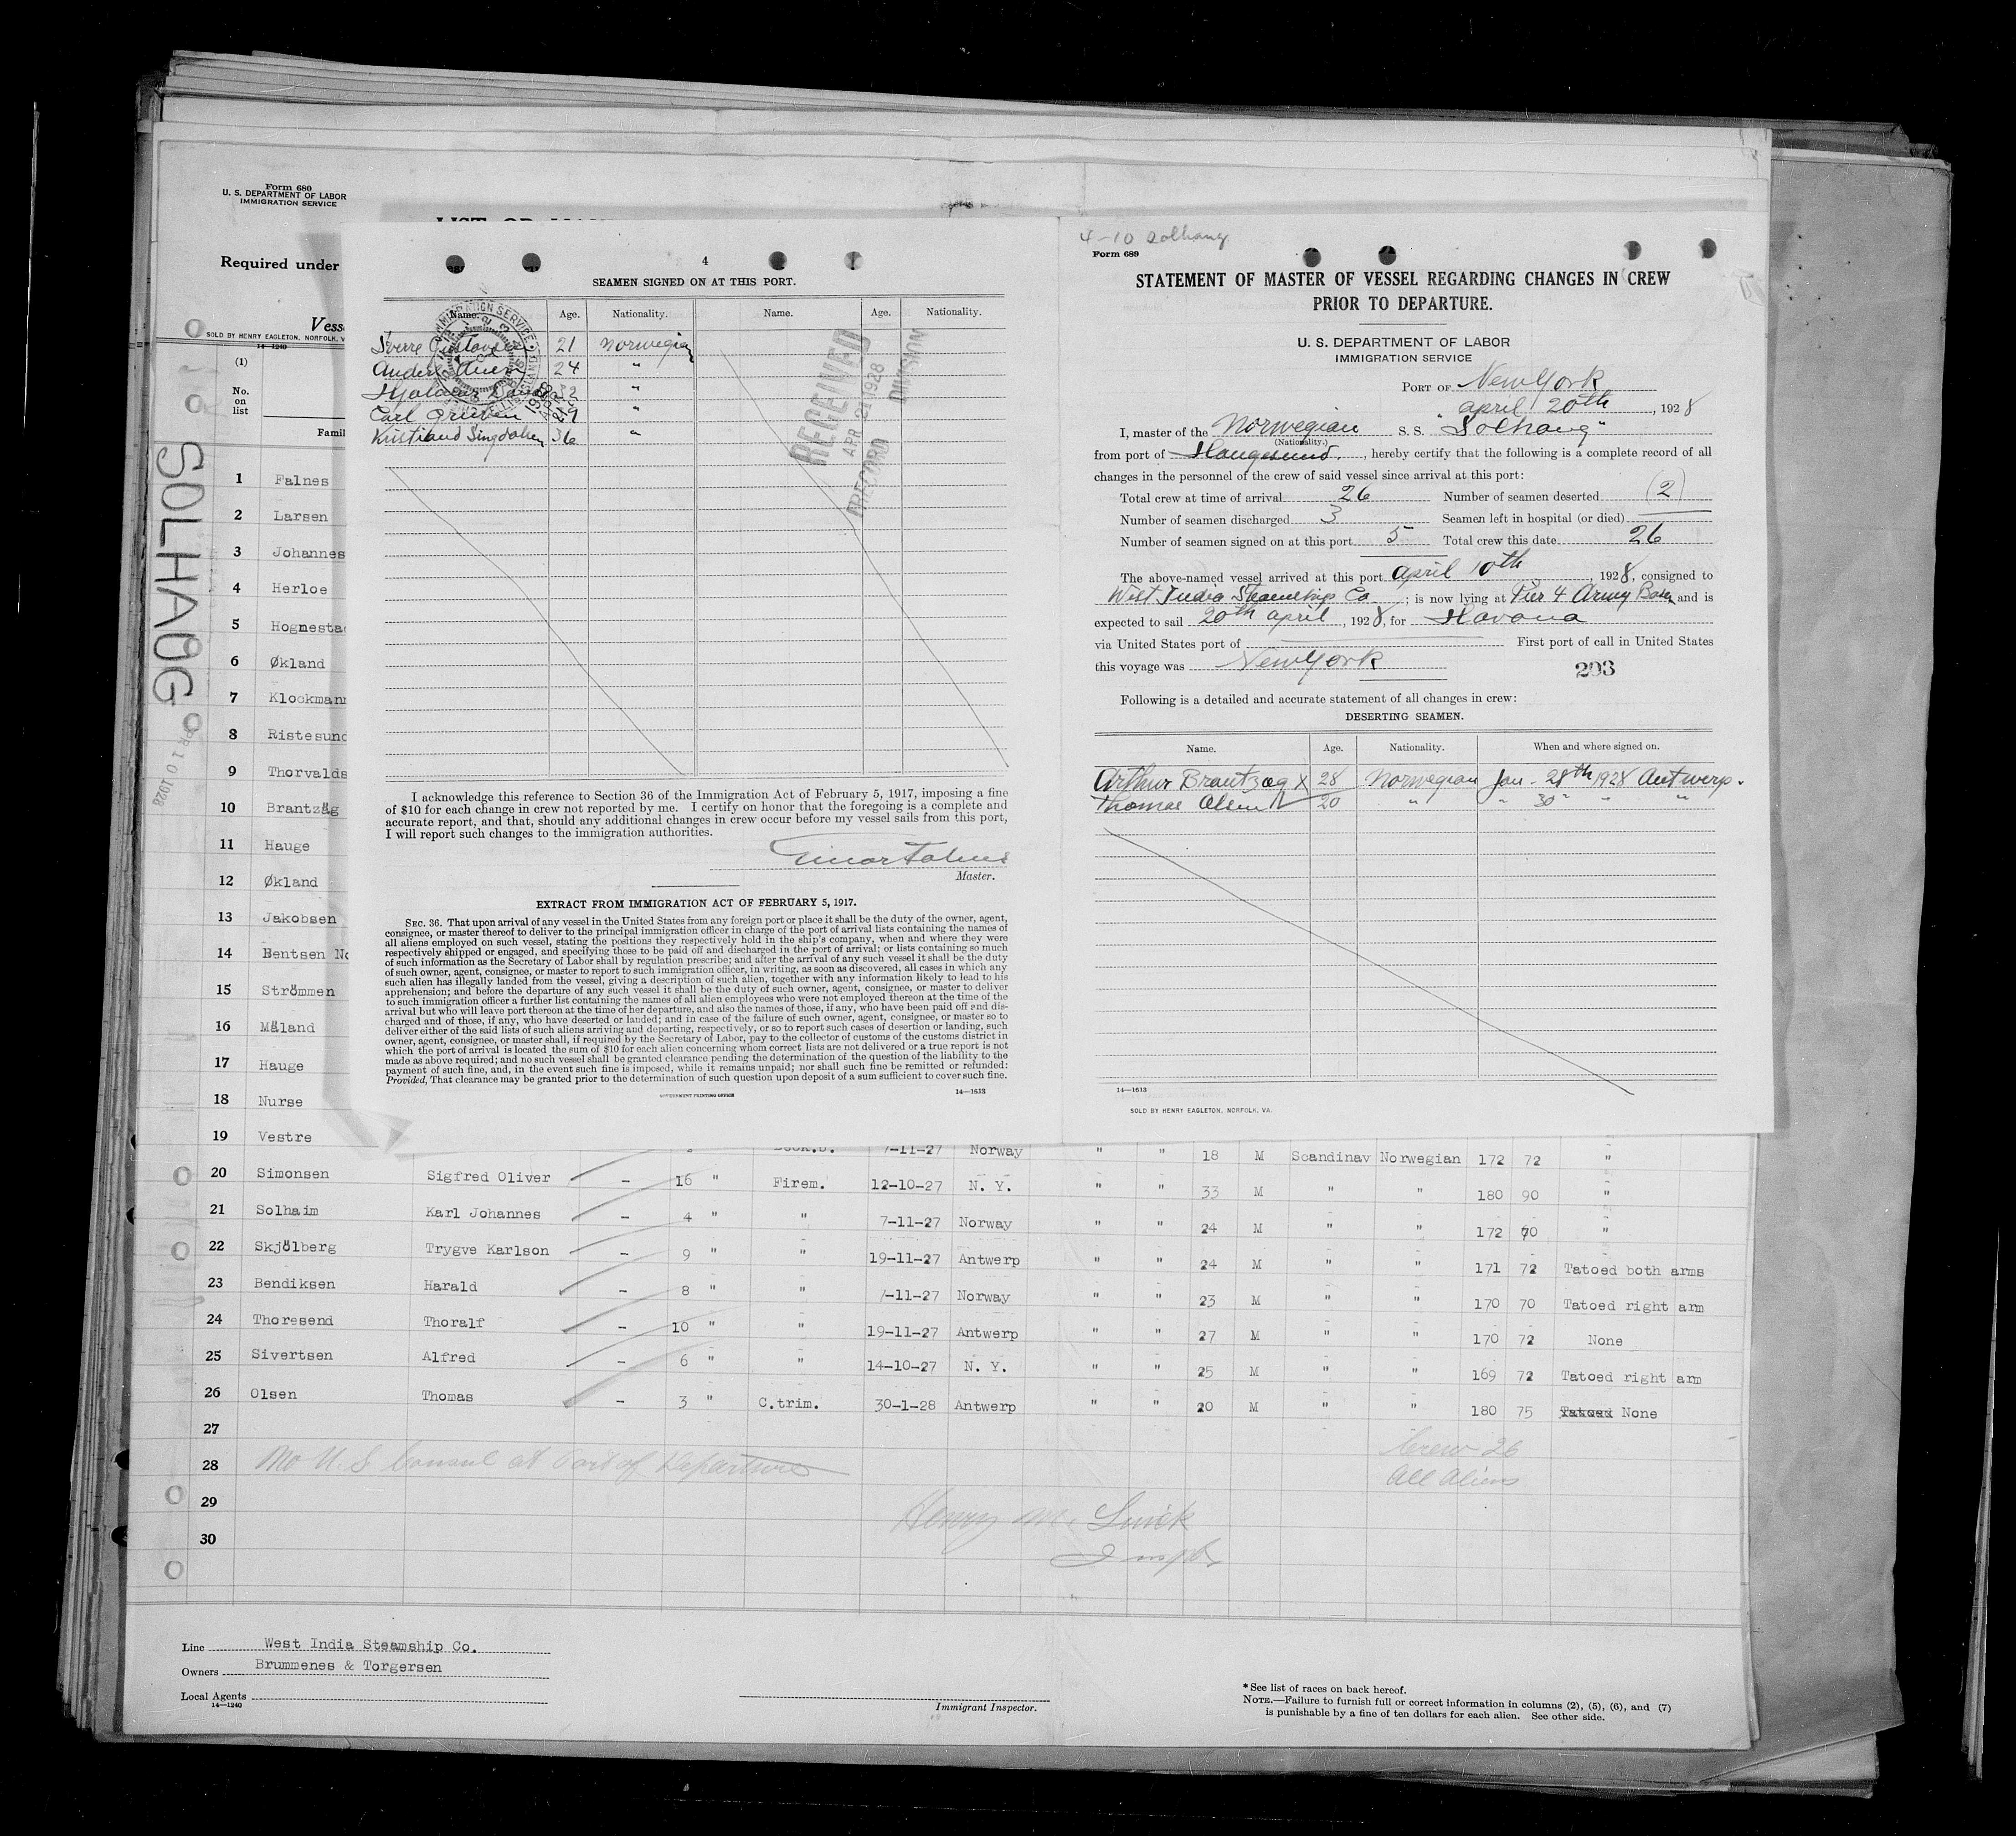 Form 680
U. S. DEPARTMENT OF LABOR
IMMIGRATION SERVICE
Required under
SOLD BY HENRY EAGLETON, NORFOLK, V
14—1240
(1)
No.
on
list
SOLHAUG
APR 10 1928
1 Falnes
2 Larsen
3 Johannes
4 Herloe
5 Hognestad
6 Økland
7 Klockmann
8 Ristesund
9 Thorvalds
10 Brantzäg
11 Hauge
12 Økland
13 Jakobsen
14 Bentsen No
15 Strömmen
16 Mäland
17 Hauge
18 Nurse
19 Vestre
4
SEAMEN SIGNED ON AT THIS PORT.
Name. Age. Nationality. Name. Age. Nationality.
Sverre Gustavsen 21 Norwegian
24 "
Hjalmar 32 "
Carl "
Kristian Singdahlsen 36 "
RECEIVED
APR 21 1928
RECORD DIVISION
I acknowledge this reference to Section 36 of the Immigration Act of February 5, 1917, imposing a fine
of $10 for each change in crew not reported by me. I certify on honor that the foregoing is a complete and
accurate report, and that, should any additional changes in crew occur before my vessel sails from this port,
I will report such changes to the immigration authorities.
Einar Falnes
Master.
EXTRACT FROM IMMIGRATION ACT OF FEBRUARY 5, 1917.
SEC. 36. That upon arrival of any vessel in the United States from any foreign port or place it shall be the duty of the owner, agent,
consignee, or master thereof to deliver to the principal immigration officer in charge of the port of arrival lists containing the names of
all aliens employed on such vessel, stating the positions they respectively hold in the ship's company, when and where they were
respectively shipped or engaged, and specifying those to be paid off and discharged in the port of arrival; or lists containing so much
of such information as the Secretary of Labor shall by regulation prescribe; and after the arrival of any such vessel it shall be the duty
of such owner, agent, consignee, or master to report to such immigration officer, in writing, as soon as discovered, all cases in which any
such alien has illegally landed from the vessel, giving a description of such alien, together with any information likely to lead to his
apprehension; and before the departure of any such vessel it shall be the duty of such owner, agent, consignee, or master to deliver
to such immigration officer a further list containing the names of all alien employees who were not employed thereon at the time of the
arrival but who will leave port thereon at the time of her departure, and also the names of those, if any, who have been paid off and dis-
charged and of those, if any, who have deserted or landed; and in case of the failure of such owner, agent, consignee, or master so to
deliver either of the said lists of such aliens arriving and departing, respectively, or so to report such cases of desertion or landing, such
owner, agent, consignee, or master shall, if required by the Secretary of Labor, pay to the collector of customs of the customs district in
which the port of arrival is located the sum of $10 for each alien concerning whom correct lists are not delivered or a true report is not
made as above required; and no such vessel shall be granted clearance pending the determination of the question of the liability to the
payment of such fine, and, in the event such fine is imposed, while it remains unpaid; nor shall such fine be remitted or refunded:
Provided, That clearance may be granted prior to the determination of such question upon deposit of a sum sufficient to cover such fine.
GOVERNMENT PRINTING OFFICE 14—1613
4-10 Solhaug
Form 689
STATEMENT OF MASTER OF VESSEL REGARDING CHANGES IN CREW
PRIOR TO DEPARTURE.
U. S. DEPARTMENT OF LABOR
IMMIGRATION SERVICE
PORT OF New York
april 20th, 1928
I, master of the Norwegian S. S. "Solhaug"
(Nationality.)
from port of Haugesund, hereby certify that the following is a complete record of all
changes in the personnel of the crew of said vessel since arrival at this port:
Total crew at time of arrival 26 Number of seamen deserted (2)
Number of seamen discharged 3 Seamen left in hospital (or died)
Number of seamen signed on at this port 5 Total crew this date 26
The above-named vessel arrived at this port april 10th 1928, consigned to
West India Steamship Co; is now lying at Pier 4 Army Base and is
expected to sail 20th april, 1928, for Havana
via United States port of First port of call in United States
this voyage was New York
293
Following is a detailed and accurate statement of all changes in crew:
DESERTING SEAMEN.
Name. Age. Nationality. When and where signed on.
Arthur Brantzæg x 28 Norwegian Jan. 28th 1928 Antwerp.
Thomas Olsen 20 " " 30" " "
14—1613
SOLD BY HENRY EAGLETON, NORFOLK, VA.
7-11-27 Norway " " 18 M Scandinav Norwegian 172 72 "
20 Simonsen Sigfred Oliver - 16 " Firem. 12-10-27 N. Y. " " 33 M " " 180 90 "
21 Solhaim Karl Johannes - 4 " " 7-11-27 Norway " " 24 M " " 172 70 "
22 Skjölberg Trygve Karlson - 9 " " 19-11-27 Antwerp " " 24 M " " 171 72 Tatoed both arms
23 Bendiksen Harald - 8 " " 7-11-27 Norway " " 23 M " " 170 70 Tatoed right arm
24 Thoresend Thoralf - 10 " " 19-11-27 Antwerp " " 27 M " " 170 72 None
25 Sivertsen Alfred - 6 " " 14-10-27 N. Y. " " 25 M " " 169 72 Tatoed right arm
26 Olsen Thomas - 3 " C.trim. 30-1-28 Antwerp " " 20 M " " 180 75 Tatoed None
27
28
29
30
No U.S Consul at Port of Departure
Crew 26
All Aliens
Henry M.
Inspr
Line West India Steamship Co.
Owners Brummenes & Torgersen
Local Agents
14—1240
Immigrant Inspector.
* See list of races on back hereof.
NOTE.—Failure to furnish full or correct information in columns (2), (5), (6), and (7)
is punishable by a fine of ten dollars for each alien. See other side.